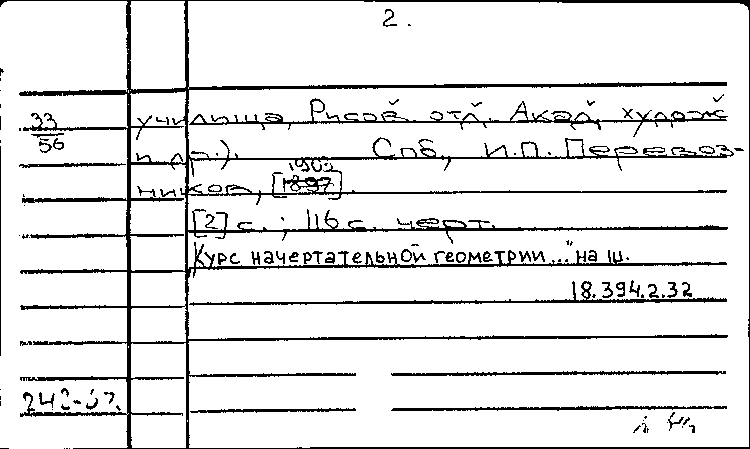 2.
33/56 училища, Рисов. отд. Акад. худож
и др.). Спб, И.П. Перевоз-
ников, [1903].
[2] с.; 116 с. черт.
"Курс начертательной геометрии..." на ш.
18.394.2.32